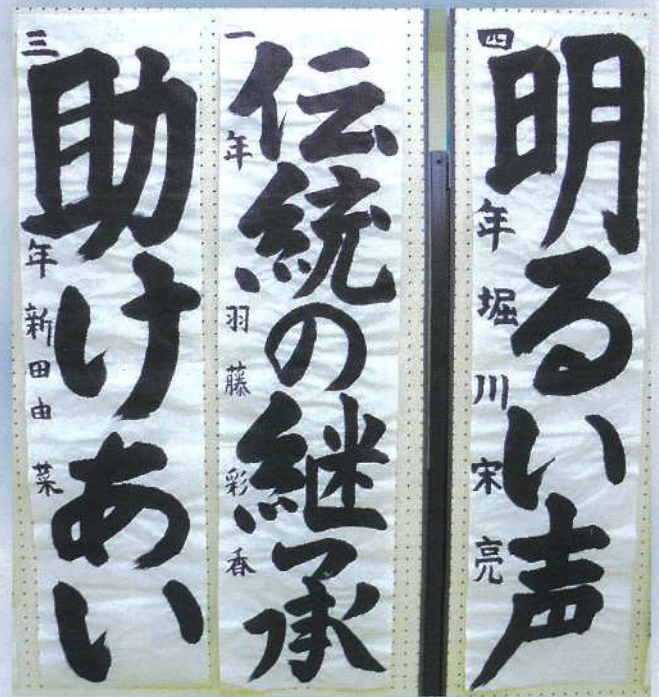 明るい声
四年 堀川宗亮
伝統の継承
一年 羽藤彩香
助けあい
三年 新田由菜